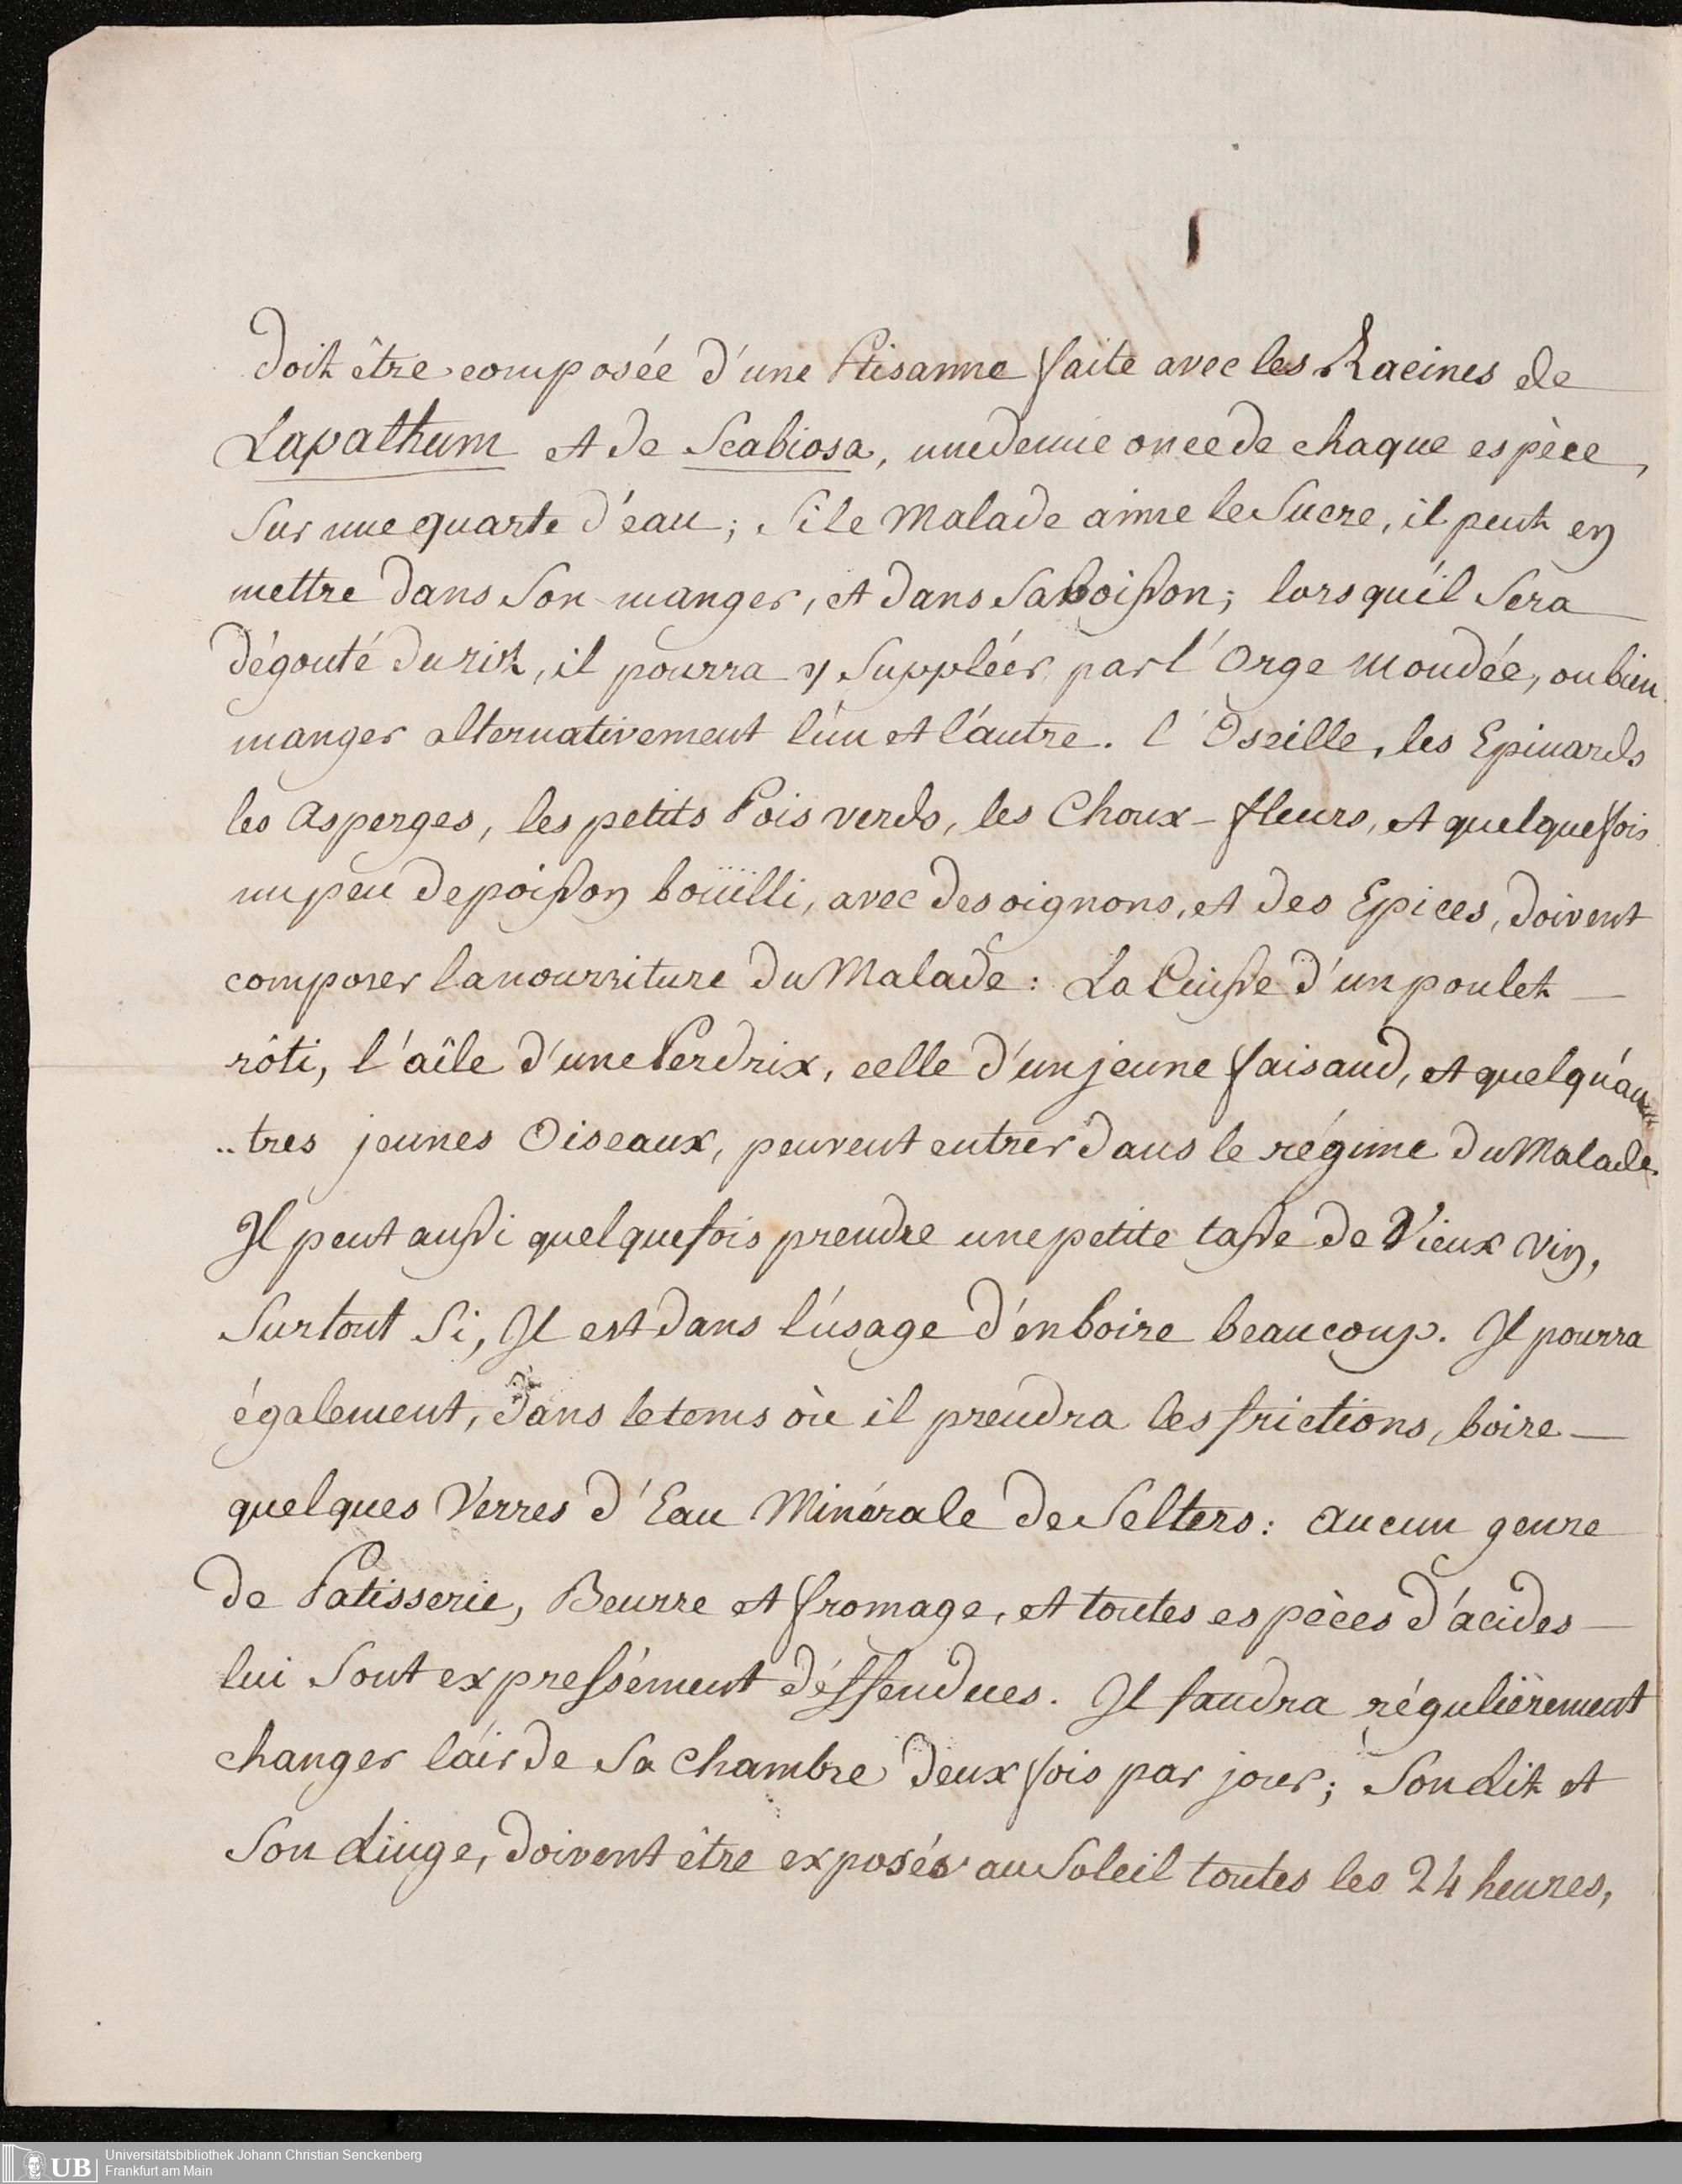 doit être composée d'une Ptisanne faite avec les Racines de
Lapathum et de Scabiosa, une demie once de chaque espèce,
Sur une quarte d'eau; Si le Malade aime le Sucre, il peut en
mettre dans Son manger, et dans Sa boisson; lorsqu'il Sera
dégouté du riz, il pourra y Suppléer par l'Orge Mondée, ou bien
manger alternativement l'un et l'autre. l'Oseille, les Epinards
les Asperges, les petits Pois verds, les Choux-fleurs, et quelquefois
un peu de poisson boüilli, avec des oignons, et des Epices, doivent
composer la nourriture du Malade: La Cuisse d'un poulet
rôti, l'aîle d'une Perdrix, celle d'un jeune faisand, et quelqu'au
..tres jeunes Oiseaux, peuvent entrer dans le régime du Malade.
Il peut aussi quelquefois prendre une petite tasse de Vieux vin,
Surtout Si, Il est dans l'usage d'en boire beaucoup. Il pourra
également, dans le tems où il prendra les frictions, boire
quelques Verres d'Eau Minérale de Selters: aucun genre
de Patisserie, Beurre et fromage, et toutes espèces d'acides
lui Sont expressément déffendues. Il faudra régulièrement
changer l'air de Sa Chambre deux fois par jour; Son Lit et
Son Linge, doivent être exposés au Soleil toutes les 24 heures,
UB
Universitätsbibliothek Johann Christian Senckenberg
Frankfurt am Main